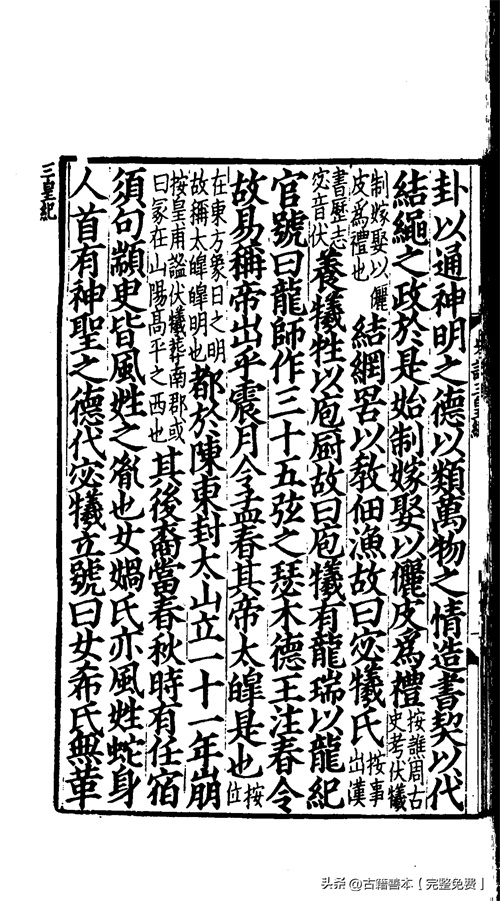 卦以通神明之德以類萬物之情造書契以代
結繩之政於是始制嫁娶以儷皮爲禮按譙周古史考伏犧
制嫁娶以儷皮爲禮也結網罟以敎佃漁故曰宓犧氏按事出漢
書歷志宓音伏養犧牲以庖厨故曰庖犧有龍瑞以龍紀
官號曰龍師作三十五弦之瑟木德王注春令
故易稱帝出乎震月令孟春其帝太皥是也按位
在東方象日之明故稱太皥皥明也都於陳東封太山立一十一年崩
按皇甫謐伏犧葬南郡或曰冢在山陽高平之西也其後裔當春秋時有任宿
須句顓臾皆風姓之胤也女媧氏亦風姓蛇身
人首有神聖之德代宓犧立號曰女希氏無革
三皇紀
头条 @古籍善本【完整免费】